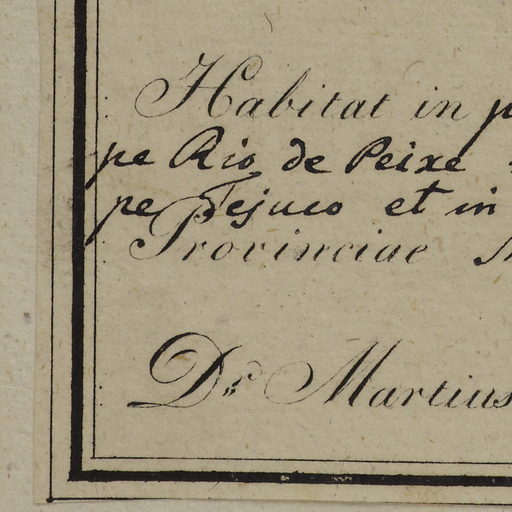 Habitat in
pe Rio de Peixe
pe Tejuco et in
Provinciae
Dr. Martius